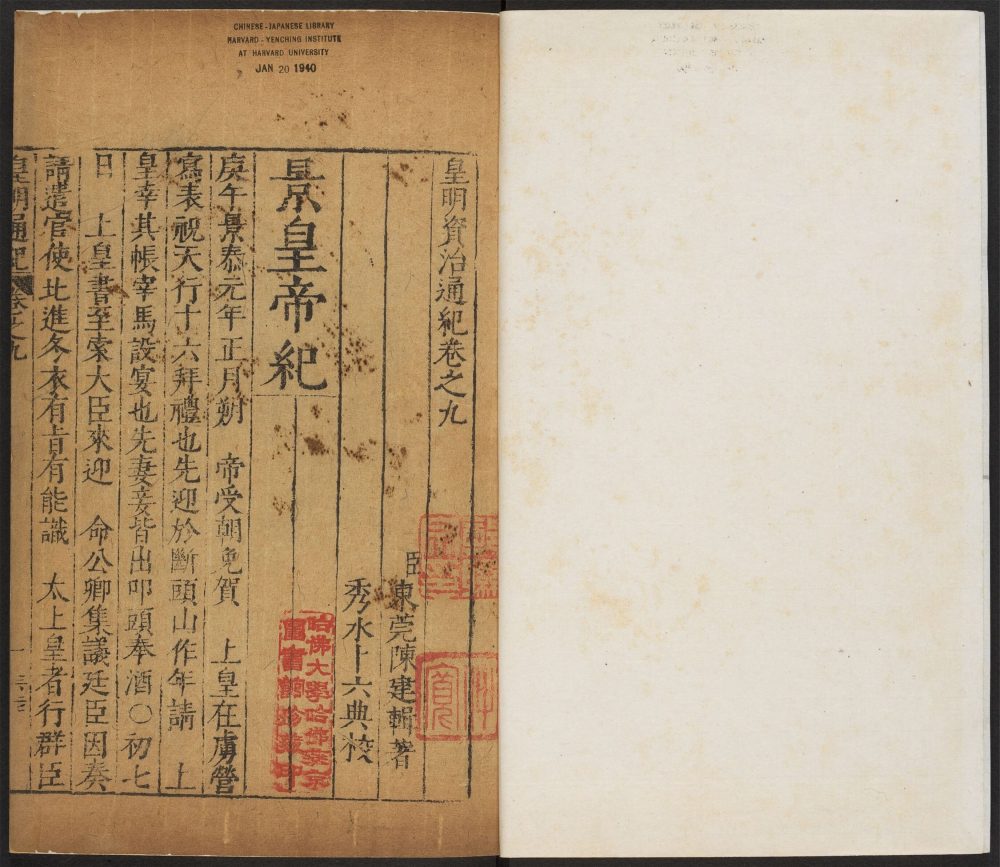 CHINESE-JAPANESE LIBRARY
HARVARD-YENCHING INSTITUTE
AT HARVARD UNIVERSITY
JAN 20 1940
皇明資治通紀卷之九
臣東莞陳建輯著
秀水卜六典校
景皇帝紀
庚午景泰元年正月朔　帝受朝免賀　上皇在虜營
寫表祝天行十六拜禮也先迎於斷頭山作年請　上
皇幸其帳宰馬設宴也先妻妾皆出叩頭奉酒〇初七
日　上皇書至索大臣來迎　命公卿集議廷臣因奏
請遣官使北進冬衣有旨有能識　太上皇者行群臣
皇明通紀 卷之九 一
哈佛大學哈佛燕京
圖書館珍藏印